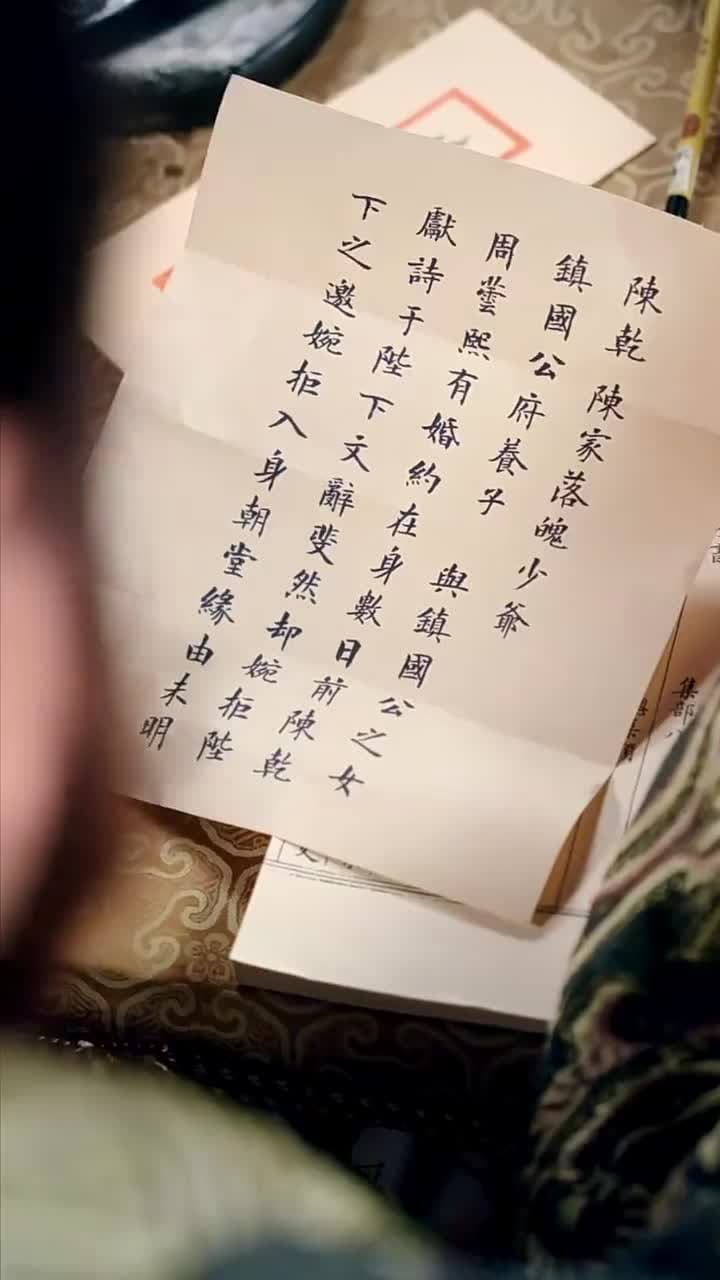 陳乾 陳家落魄少爺
鎮國公府養子 與鎮國公之女
周蕓熙有婚約在身數日前陳乾
獻詩于陛下文辭斐然却婉拒陛
下之邀婉拒入身朝堂緣由未明
集部八